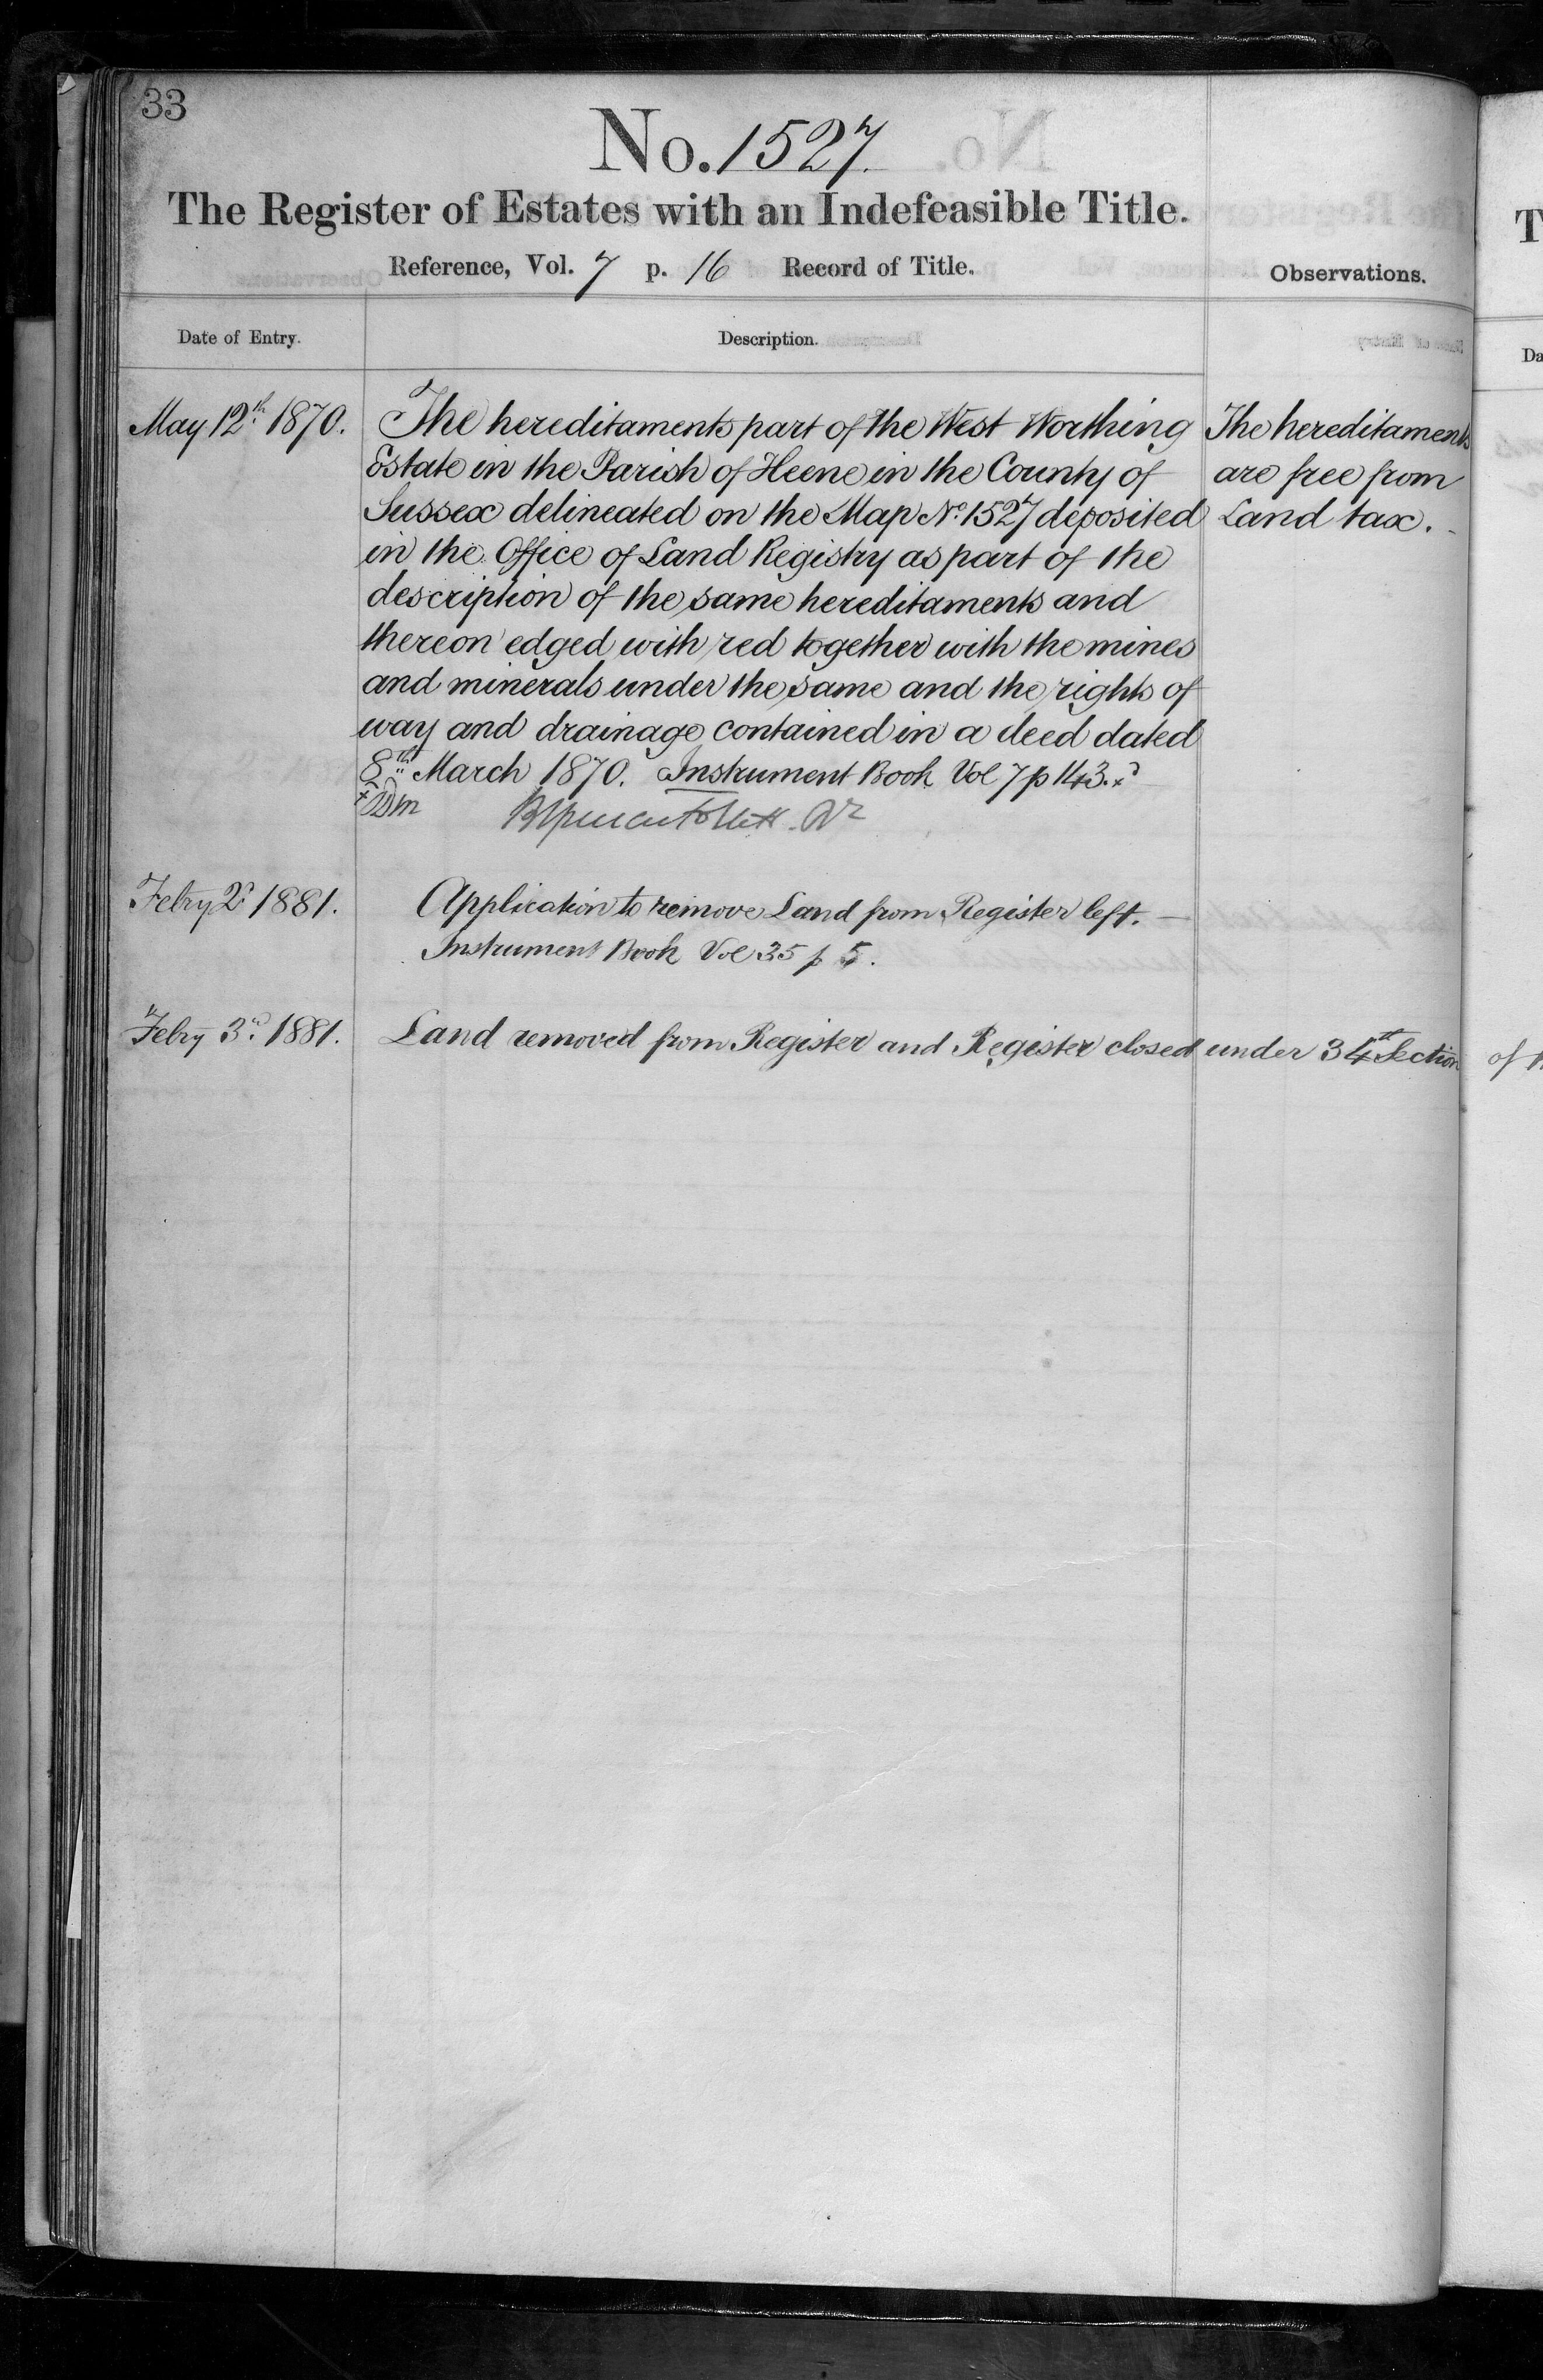 33
No. 1527.
The Register of Estates with an Indefeasible Title.
Reference, Vol. 7 p. 16 Record of Title.
Observations.
Date of Entry.
Description.
May 12th 1870.
The hereditaments part of the West Worthing
Estate in the Parish of Heene in the County of
Sussex delineated on the Map No. 1527 deposited
in the Office of Land Registry as part of the
description of the same hereditaments and
thereon edged with red together with the mines
and minerals under the same and the rights of
way and drainage contained in a deed dated
8th March 1870. Instrument Book Vol 7 p 143. x
The hereditaments
are free from
Land tax.
Febry 2d 1881.
Application to remove Land from Register left. —
Instrument Book Vol 35 p 5.
Febry 3rd 1881.
Land removed from Register and Register closed under 34th Section of